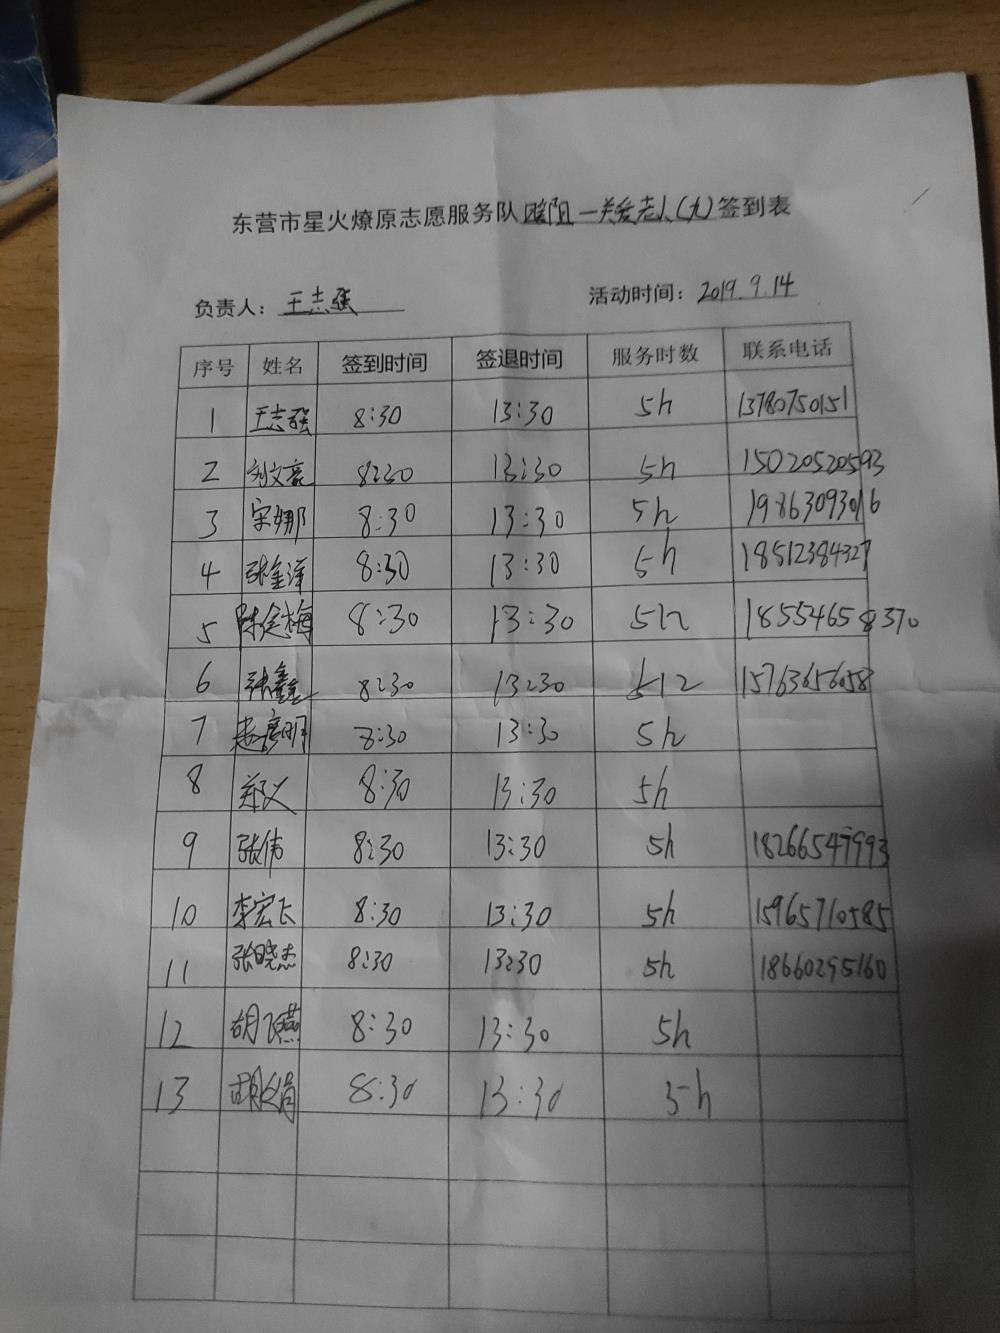 东营市星火燎原志愿服务队暖阳一关爱老人(九)签到表
负责人：王志强 活动时间：2019.9.14
序号 姓名 签到时间 签退时间 服务时数 联系电话
1 王志强 8:30 13:30 5h 13780750151
2 刘文豪 8:30 13:30 5h 15020520593
3 宋娜 8:30 13:30 5h 19863093016
4 张金泽 8:30 13:30 5h 18512384327
5 陈俊梅 8:30 13:30 5h 18554658370
6 张鑫 8:30 13:30 5h 15763656058
7 8:30 13:30 5h
8 郑义 8:30 13:30 5h
9 张伟 8:30 13:30 5h 18266547993
10 李宏飞 8:30 13:30 5h 15965710585
11 张晓杰 8:30 13:30 5h 18660295160
12 胡飞燕 8:30 13:30 5h
13 胡文娟 8:30 13:30 5h